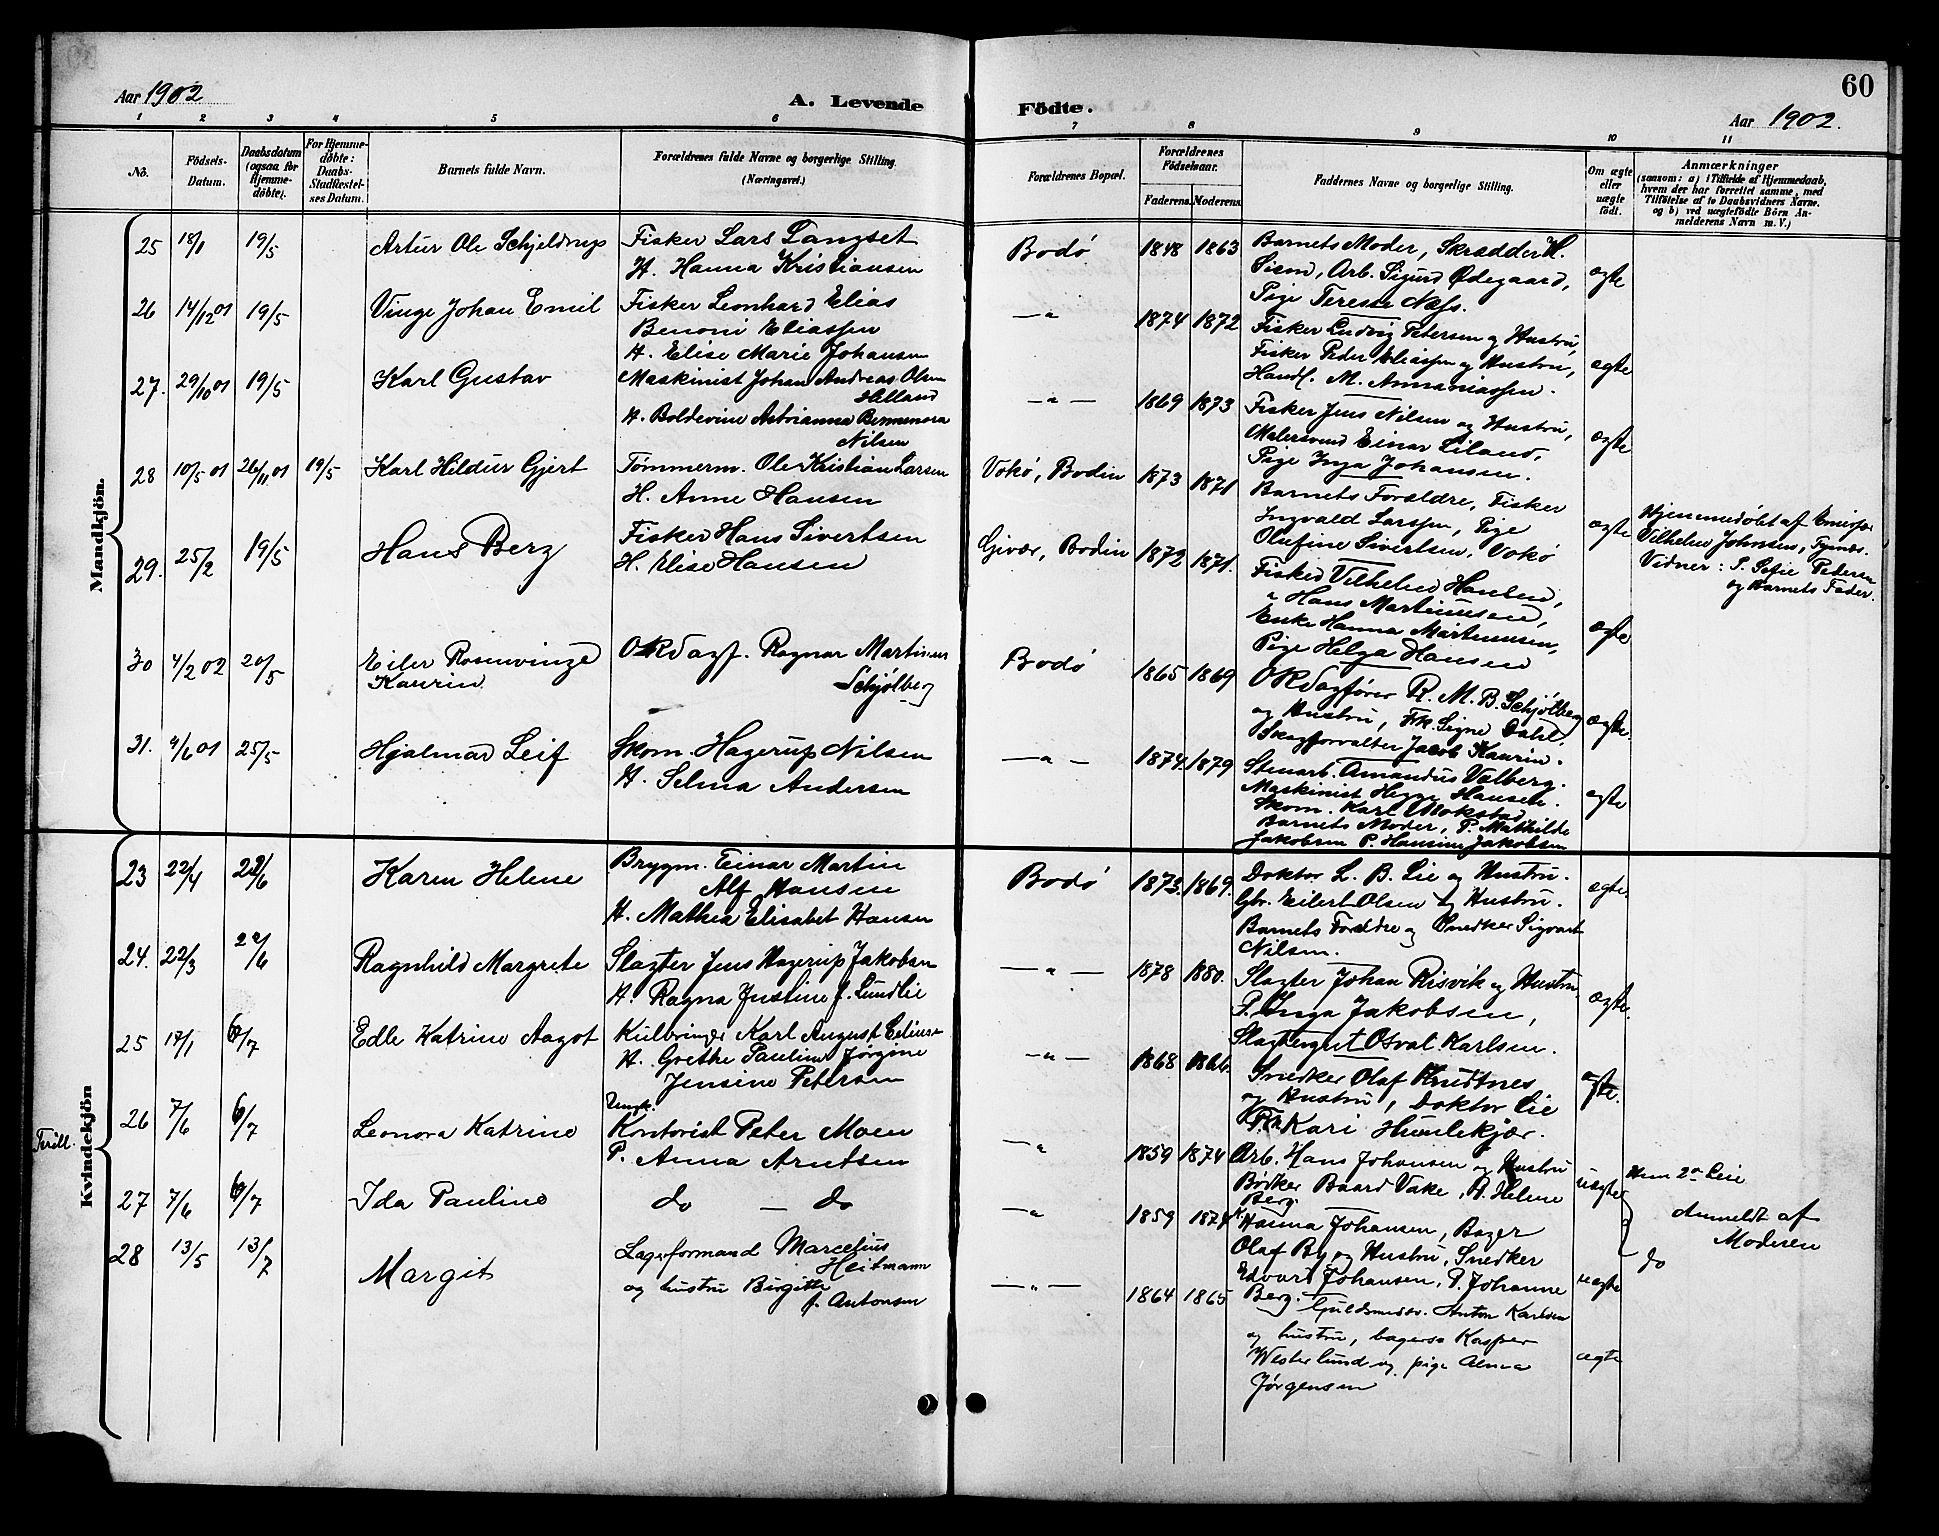 60
Aar 1902
A. Levende Födte.
Aar 1902.
1 2 3 4 5 6 7 8 9 10 11
No.
Födsels-Datum.
Daabsdatum (ogsaa for Hjemme-döbte).
For Hjemme-döbte: Daabs-Stadfæstel-ses Datum.
Barnets fulde Navn.
Forældrenes fulde Navne og borgerlige Stilling. (Næringsvei.)
Forældrenes Bopæl.
Forældrenes Födselsaar.
Faderens. Moderens.
Faddernes Navne og borgerlige Stilling.
Om ægte eller uægte födt.
Anmærkninger
(saasom: a) i Tilfælde af Hjemmedaab,
hvem der har forrettet samme, med
Tilföielse af to Daabsvidners Navne.
og b) ved uægtefödte Börn An-
melderens Navn m. V.)
Mandkjön.
25 18/1 19/5 Artur Ole Schjeldrup
Fisker Lars Langset
H. Hanna Kristiansen
Bodø 1848 1863
Barnets Moder, Skrædder H.
Sism, Arb. Sigurd Ødegaard,
Pige Terese Næss.
ægte
26 14/12 01 19/5 Vinge Johan Emil
Fisker Leonhard Elias
Benoni Eliassen
H. Elise Marie Johansen
—"— 1874 1872
Fisker Ludvig Petersen og Hustru,
Fisker Peder Eliassen og Hustru,
Handl. M. Annaniassen.
ægte
27. 29/10 01 19/5 Karl Gustav
Maskinist Johan Andreas Olsen
Helland
H. Boldevine Astrianna Bermenora
Nilsen
—"— 1869 1873
Fisker Jens Nilsen og Hustru,
Malersvend Einar Eiland,
Pige Inga Johansen.
ægte
28 10/5 01 26/11 01 19/5 Karl Hildur Gjert
Tømmerm. Ole Kristian Larsen
H. Anne Hansen
Vokø, Bodin 1873 1871
Barnets Forældre, Fisker
Ingvald Larssen, Pige
Olufine Sivertsen, Vokø
ægte
Hjemmedøbt af
Vilhelm Johnsen,
Vidner: P. Sofie Pedersen
og Barnets Fader.
29. 25/2 19/5 Hans Berg
Fisker Hans Sivertsen
H. Elise Hansen
Givær, Bodin 1872 1871.
Fisker Vilhelm Hansen,
" Hans Martinusen,
Enke Hanna Martinusen,
Pige Helga Hansen
ægte
30 4/2 02 20/5 Eiler Rosenvinge
Kaurin
ORsagf. Ragnar Martinus
Schjølberg
Bodø 1865 1869
ORsagfører R. M. B. Schjølberg
og Hustru, Frk Signe Dahl,
Skogforvalter Jacob Kaurin.
ægte.
31. 4/6 01 25/5 Hjalmar Leif
Skom. Hagerup Nilsen
H. Selma Andersen
—"— 1874. 1879
Stenarb. Amandus Valberg.
Maskinist Hegge Hansen.
Skom. Karl Mokstad,
Barnets Moder, P. Mathilde
Jakobsen P. Hansine Jakobsen
ægte
Kvindekjön
23 22/4 22/6 Karen Helene
Brygm. Einar Martin
Alf Hansen
H. Mathea Elisabet Hansen
Bodø 1873. 1869.
Doktor L. B. Lie og Hustru.
Gbr. Eilert Olsen og Hustru.
Barnets Forældre og Snedker Sigvart
Nilsen.
ægte.
24. 22/3 22/6 Ragnhild Margrete
Slagter Jens Hagerup Jakobsen
H. Ragna Justine f. Lundlie
—"— 1878 1880.
Slagter Johan Risvik og Hustru.
P. Inga Jakobsen,
Slagtergut Osvat Karlsen.
ægte.
25 17/1 6/7 Edle Katrine Aagot
Kulbringer Karl August
H. Grethe Pauline Jørgine
Jensine Petersen
—"— 1868 1866.
Snedker Olaf Knudtnes
og Hustru, Doktor Lie
Frk Kari Hunlekjær.
ægte.
Tvill.
26 7/6 6/7 Leonora Katrine
Ungk.
Kontorist Peter Moen
P. Anna Arntsen
" 1859 1874
Arb. Hans Johansen og Hustru
Bødker Baard Vake, P. Helene
Berg.
uægte
Hun 2det Leie
Anmeldt af
Moderen
27 7/6 6/7 Ida Pauline
do — do
—" 1859 1874
Hanna Johansen, Bager
Olaf By og Hustru, Snedker
Edvart Johansen, P. Johanne
Berg.
uægte
do
28 13/5 13/7 Margit
Lagerformand Marcelius
Heitmann
og hustru Birgitte
f. Antonsen
—"— 1864 1865
Guldsmedsv. Anton Karlsen
og hustru, bagersv Kasper
Westerlund og pige Alma
Jørgensen
ægte